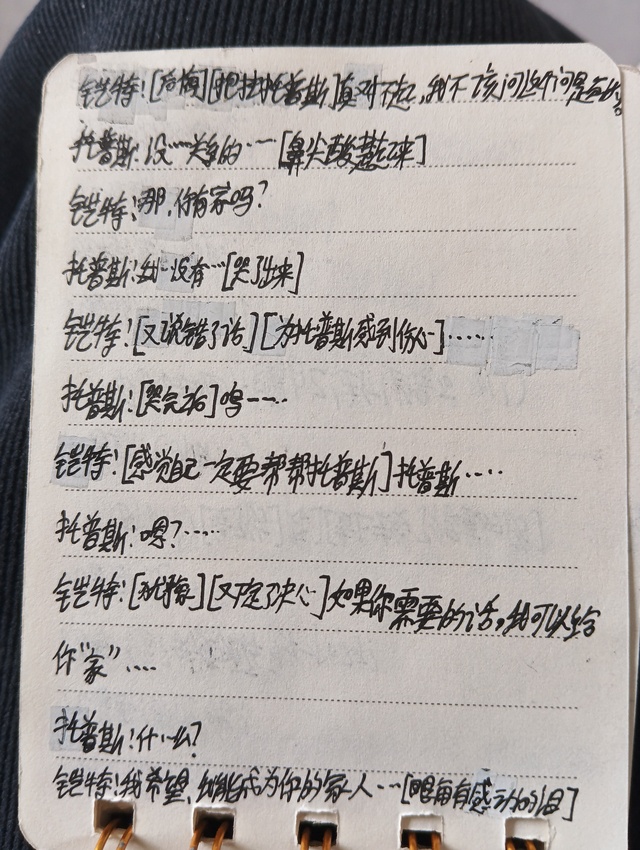 铠特:[后悔][抱抱托普斯]真对不起,我不该问这个问题的
托普斯:没……关系的……[鼻尖酸起来]
铠特:那,你有家吗?
托普斯:我…没有…[哭了出来]
铠特:[又说错了话][为托普斯感到伤心]……
托普斯:[哭完后]呜……
铠特:[感觉自己一定要帮帮托普斯]托普斯……
托普斯:嗯?……
铠特:[犹豫][又下定了决心]如果你需要的话,我可以给
你“家”……
托普斯:什么?
铠特:我希望,我能成为你的家人…[眼角有感动的泪]